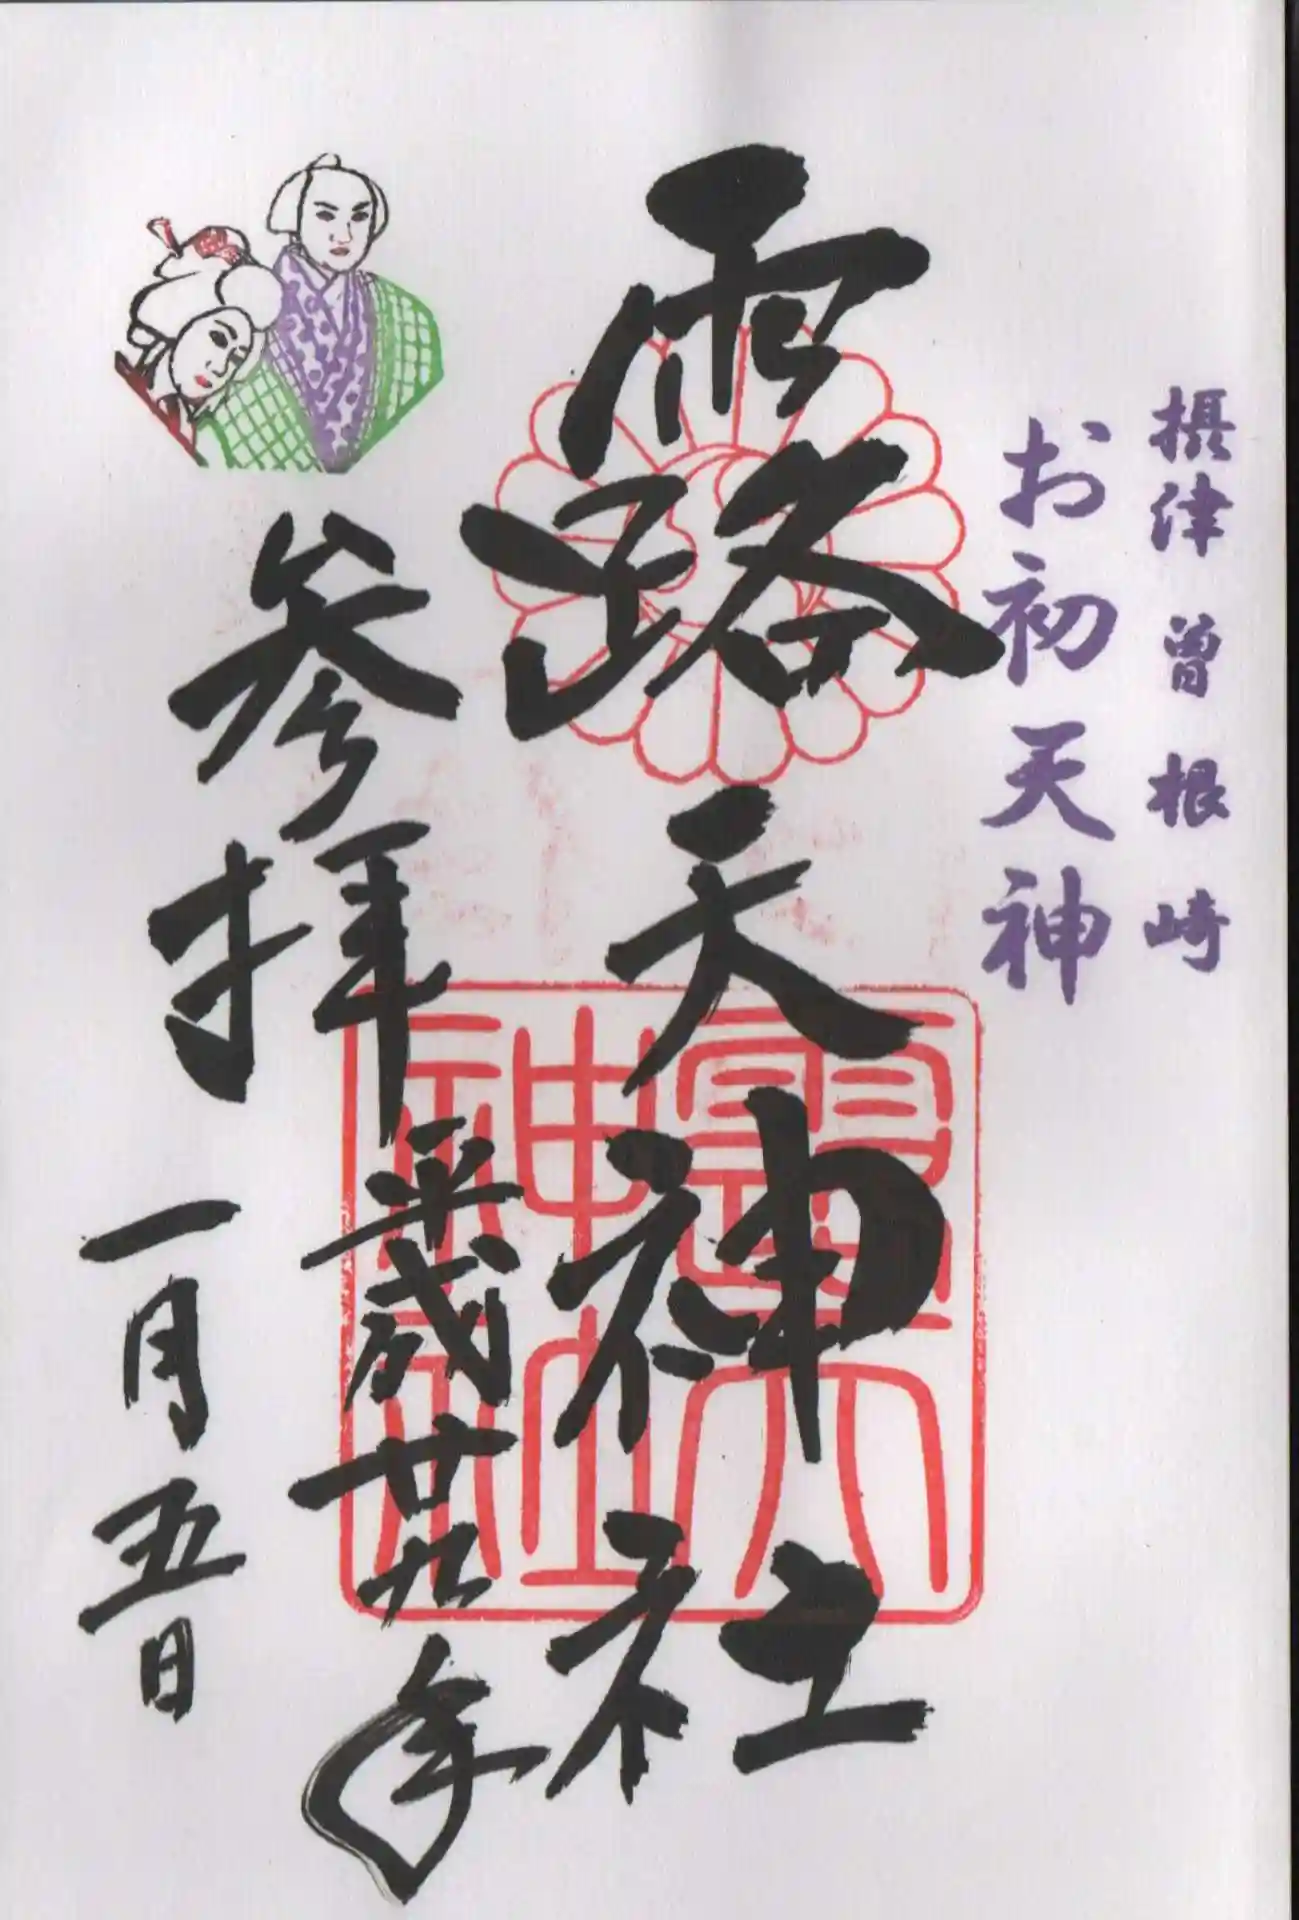 摂津曽根崎
お初天神
露天神社
参拝
平成廿九年
一月五日
露天神社